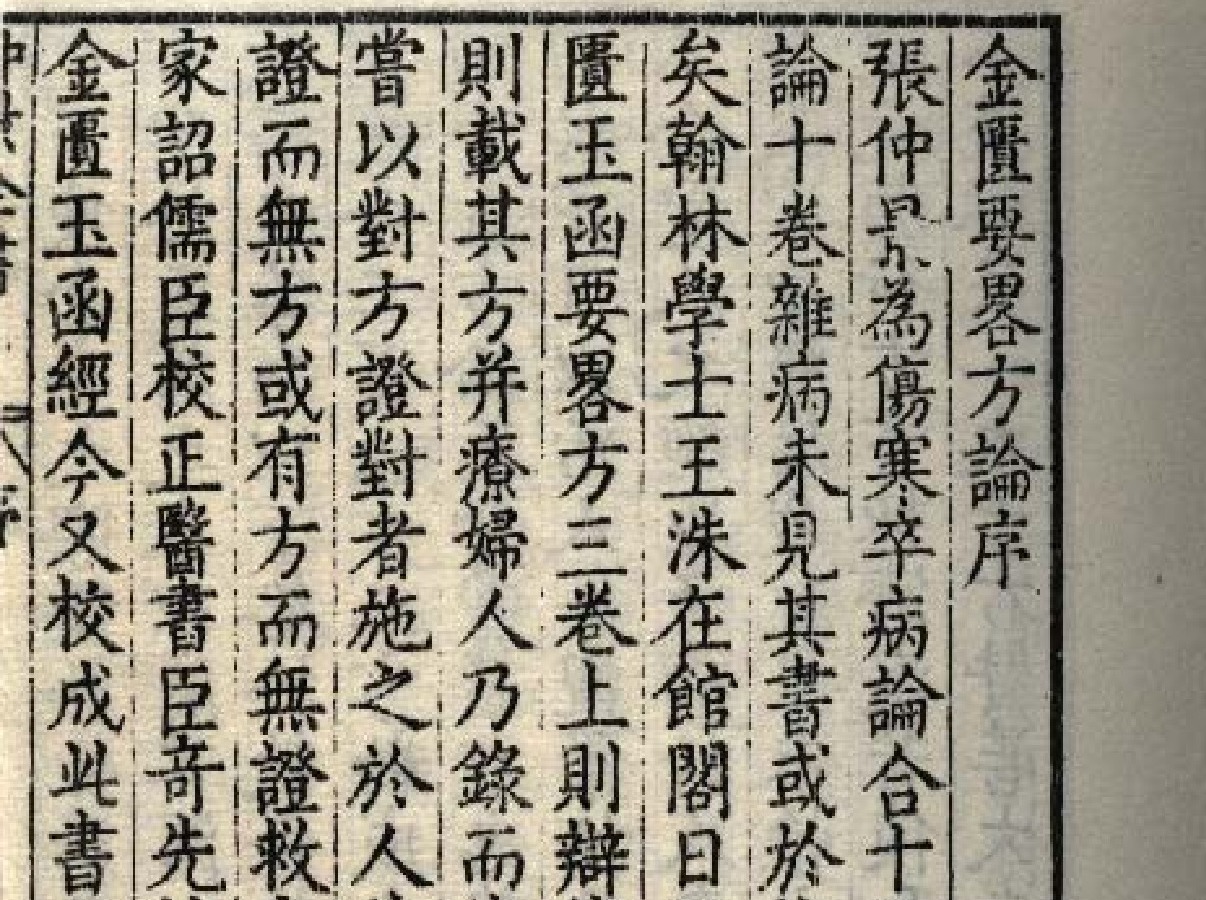 金匱要畧方論序
張仲景為傷寒卒病論合十
論十卷雜病未見其書或於
矣翰林學士王洙在館閣日
匱玉函要畧方三卷上則辯
則載其方并療婦人乃錄而
嘗以對方證對者施之於人
證而無方或有方而無證救
家詔儒臣校正醫書臣竒先
金匱玉函經今又校成此書